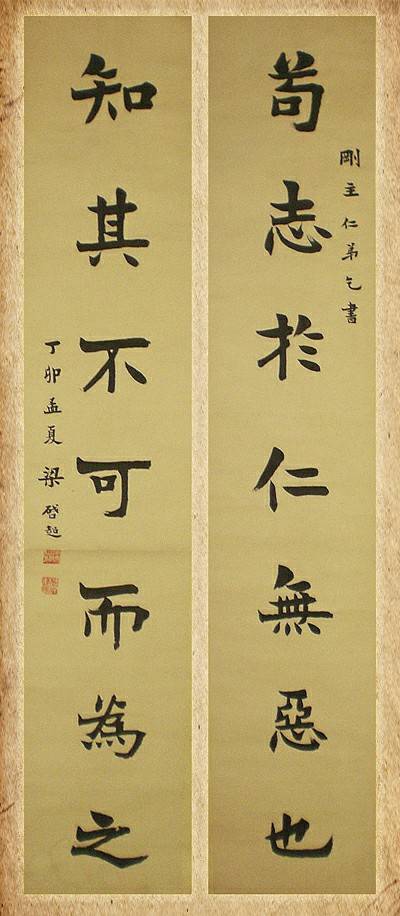 剛主仁弟乞書
苟志於仁無惡也
知其不可而為之
丁卯孟夏梁啓超